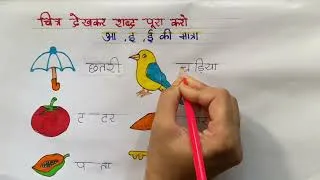 चित्र देखकर शब्द पूरा करो
आ, इ, ई की मात्रा
छतरी च ड़िया
ट  टर
प  ता